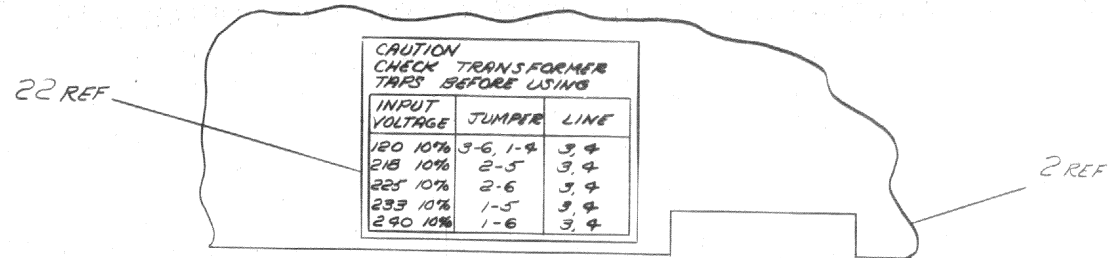 CAUTION
CHECK TRANSFORMER
TAPS BEFORE USING
22 REF
INPUT VOLTAGE JUMPER LINE
120 10% 3-6, 1-4 3, 4
218 10% 2-5 3, 4
225 10% 2-6 3, 4
233 10% 1-5 3, 4
240 10% 1-6 3, 4
2 REF